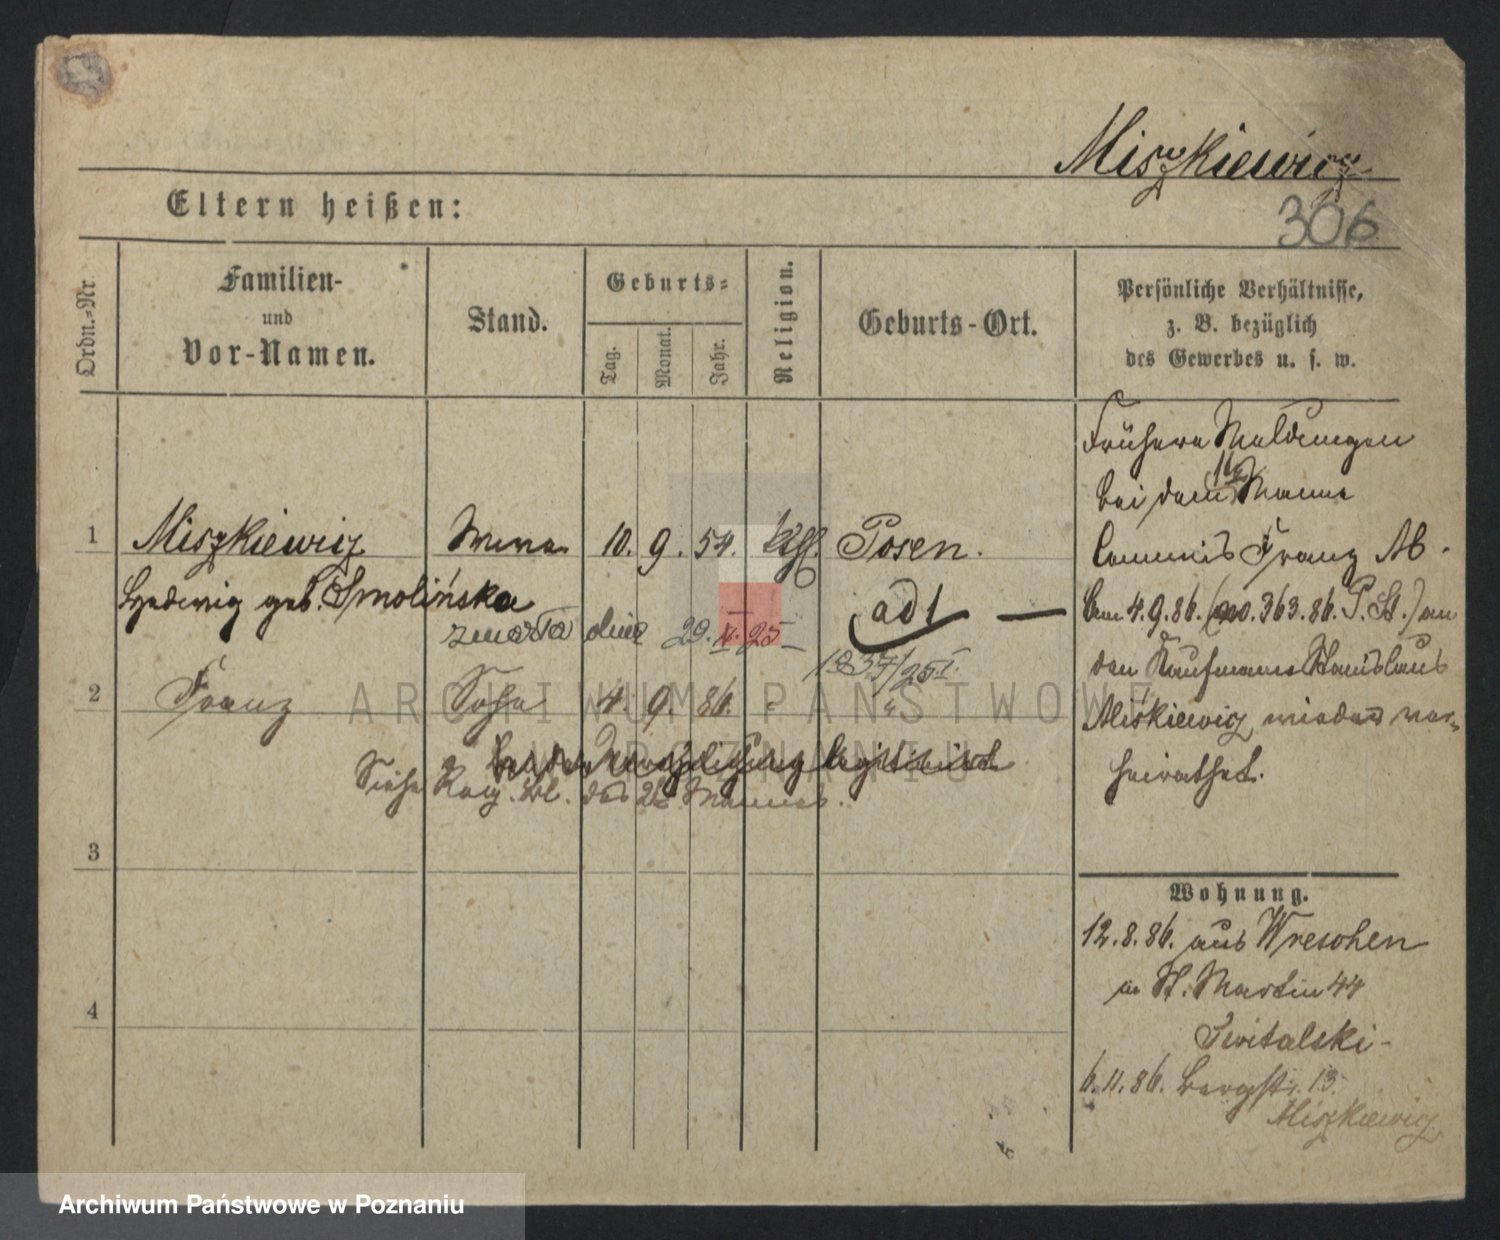 Miszkiewicz
306
Eltern heißen:
Ordn.-Nr
Familien-
und
Vor-Namen.
Stand.
Geburts-
Tag.
Monat.
Jahr.
Religion.
Geburts-Ort.
Persönliche Verhältnisse,
z. B. bezüglich
des Gewerbes u. s. w.
Frühere Meldungen
bei dem Manne
Commis Franz M.
am 4.9.86. (no. 363.86. P. St.) an
den Kaufmann Stanislaus
Miśkiewicz wieder ver-
heirathet.
1 Miszkiewicz Wwe. 10. 9. 54. kath. Posen.
Hedwig geb. Smolińska
ad 1 —
zmarła dnia 29. 25
1837/25 I.
2 Franz Sohn 4. 9. 86. "
legitimirt
Siehe Reg. Bl. des 2t. Mannes.
3
4
Wohnung.
12.8.86. aus Wreschen
n St. Martin 44
Switalski-
6.11.86. Bergstr. 13.
Miszkiewicz
ARCHIWUM PAŃSTWOWE
W POZNANIU
Archiwum Państwowe w Poznaniu